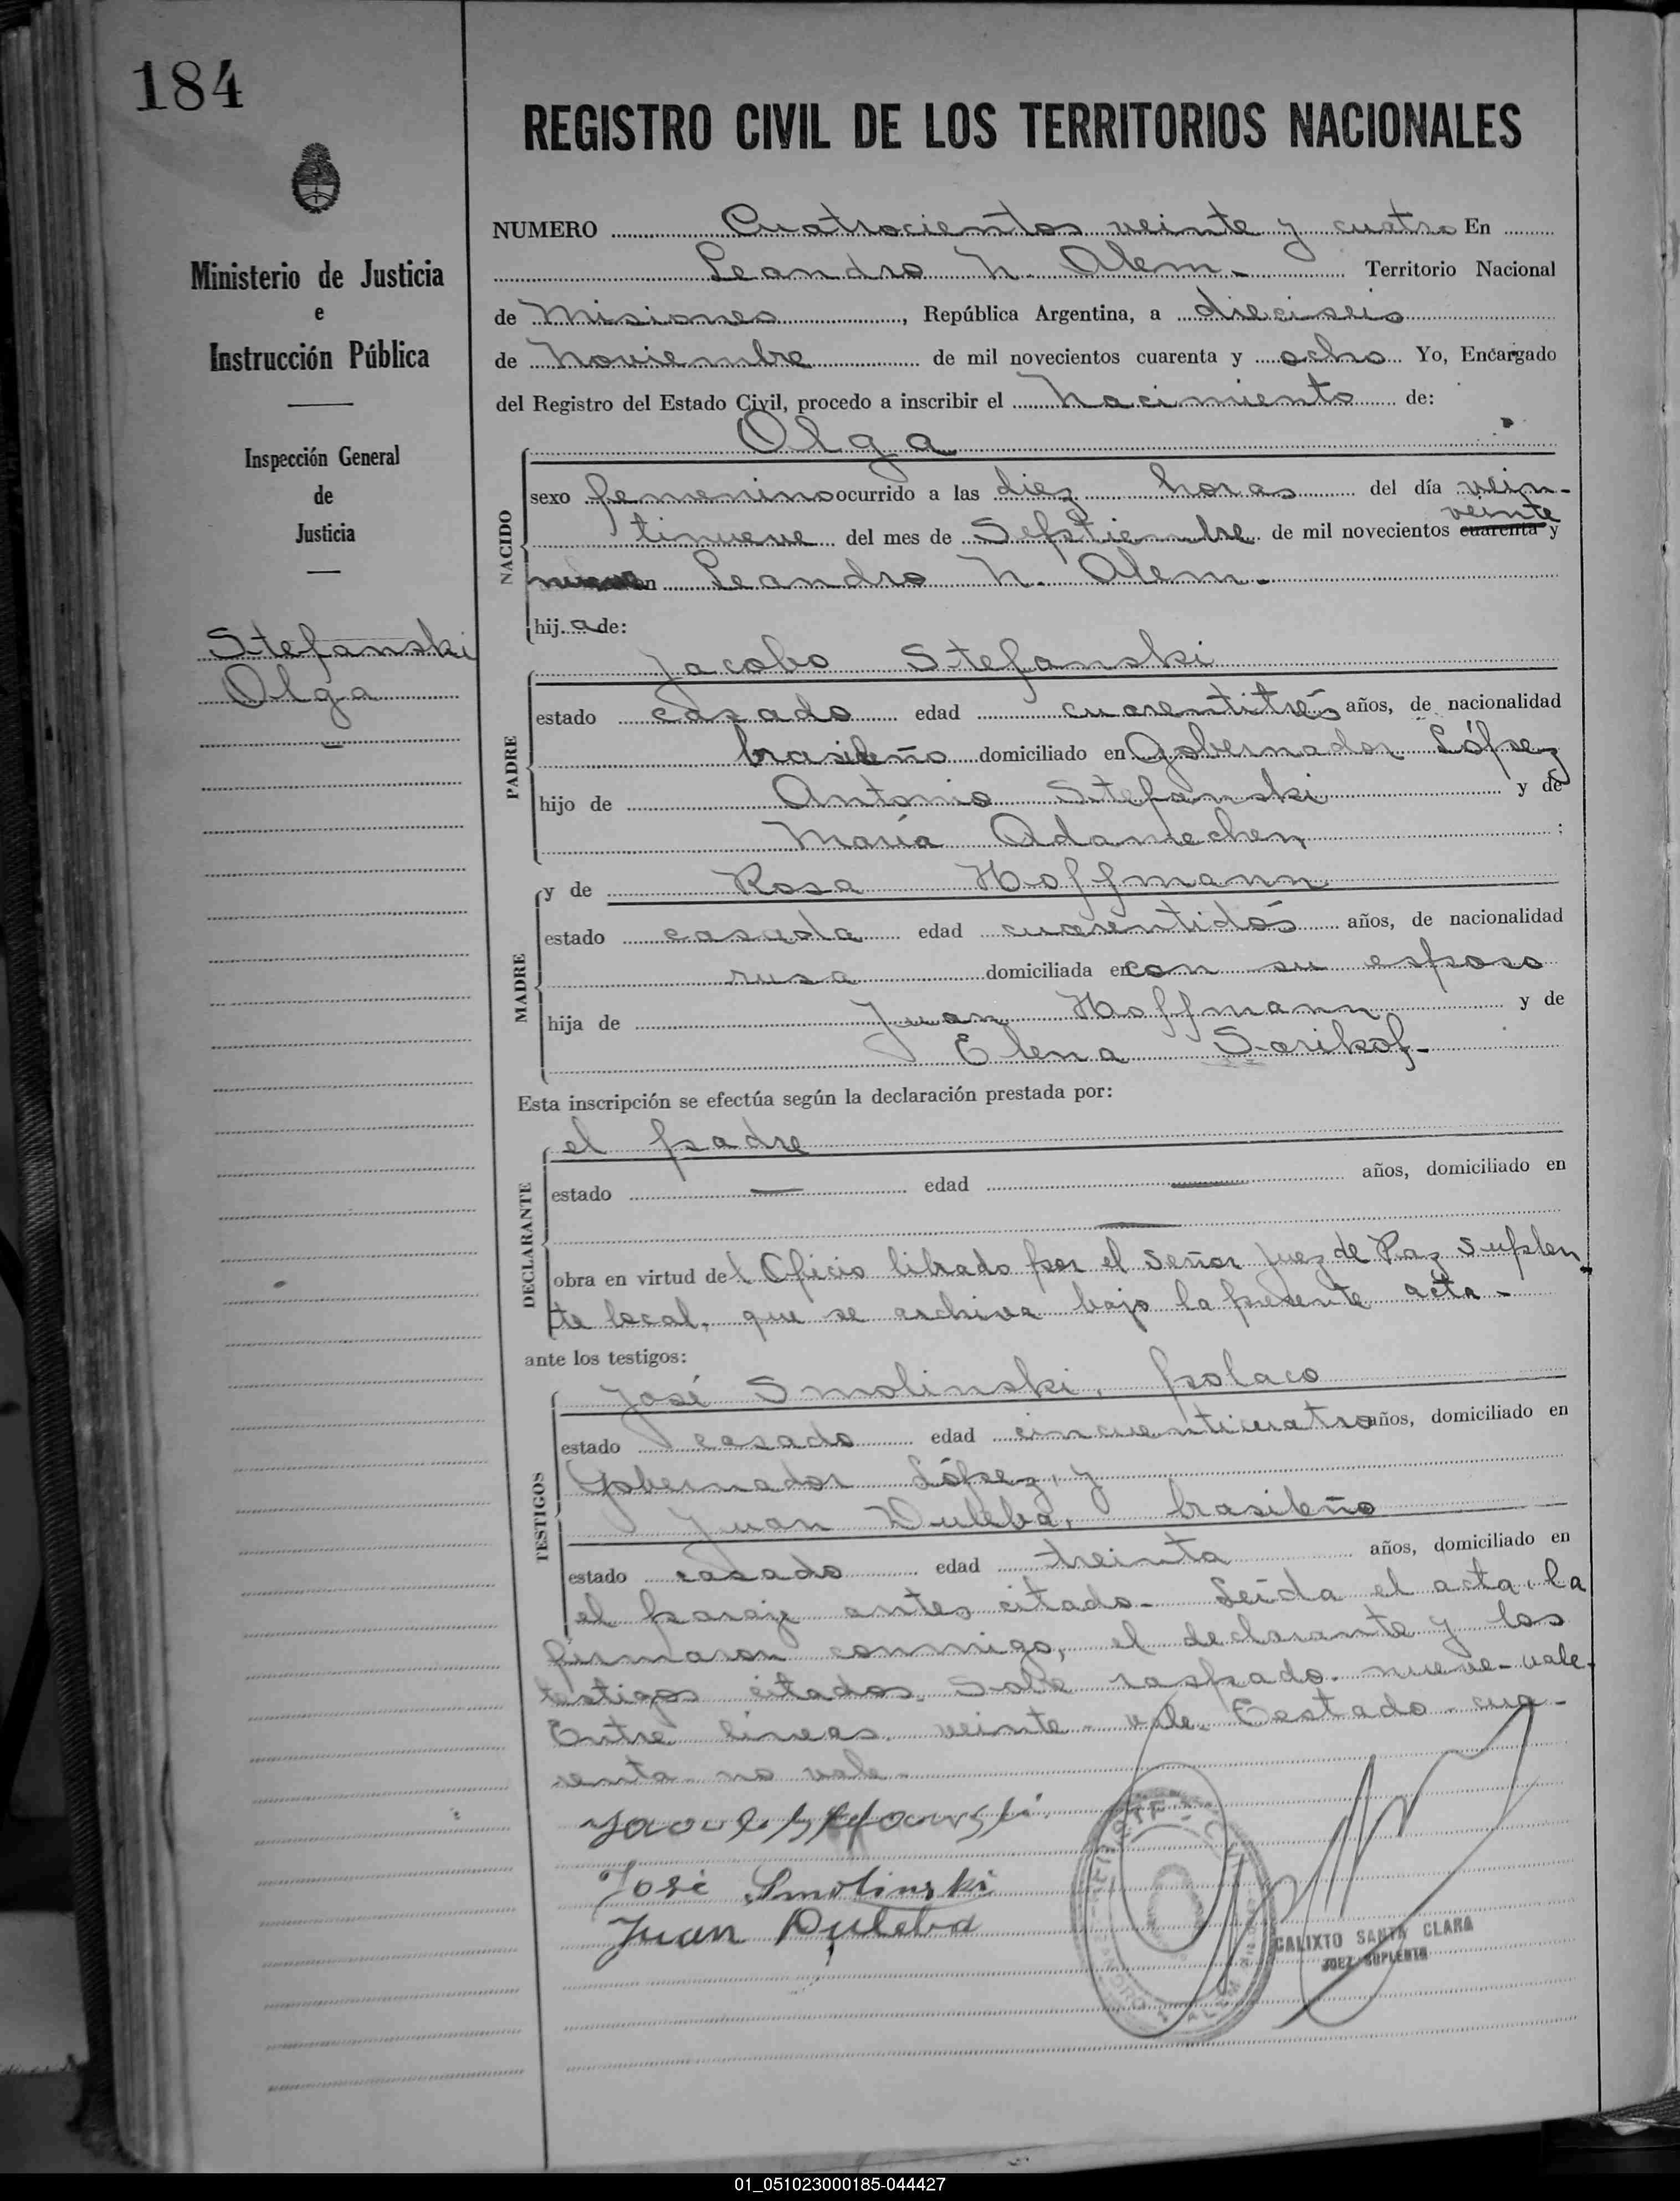 184
REGISTRO CIVIL DE LOS TERRITORIOS NACIONALES
Ministerio de Justicia
e
Instrucción Pública
Inspección General
de
Justicia
Stefanski
Olga
NUMERO Cuatrocientos veinte y cuatro En
Leandro N. Alem. Territorio Nacional
de Misiones, República Argentina, a dieciseis
de Noviembre de mil novecientos cuarenta y ocho Yo, Encargado
del Registro del Estado Civil, procedo a inscribir el Nacimiento de:
Olga
NACIDO
sexo femenino ocurrido a las diez horas del día vein-
veinte
tinueve del mes de Septiembre de mil novecientos cuarenta y
nueve en Leandro N. Alem.-
hija de:
PADRE
Jacobo Stefanski
estado casado edad cuarentitrés años, de nacionalidad
brasileño domiciliado en Gobernador López
hijo de Antonio Stefanski y de
María Adamechen;
MADRE
y de Rosa Hoffmann
estado casada edad cuarentidós años, de nacionalidad
rusa domiciliada en con su esposo
hija de Juan Hoffmann y de
Elena Sorikof-
Esta inscripción se efectúa según la declaración prestada por:
DECLARANTE
el padre
estado — edad — años, domiciliado en
—
obra en virtud del Oficio librado por el señor Juez de Paz suplen
te local, que se archiva bajo la presente acta-
ante los testigos:
TESTIGOS
José Smolinski, polaco
estado casado edad cincuenticuatro años, domiciliado en
Gobernador López, y
Juan Duleba, brasileño
estado casado edad treinta años, domiciliado en
el paraje antes citado- Leída el acta, la
firmaron conmigo, el declarante y los
testigos citados. Sobre raspado. nueve-vale.
Entre líneas. veinte-vale. Testado-cua-
renta-no vale-
José Smolinski
Juan Duleba
CALIXTO SANTA CLARA
JUEZ SUPLENTE
01_051023000185-044427